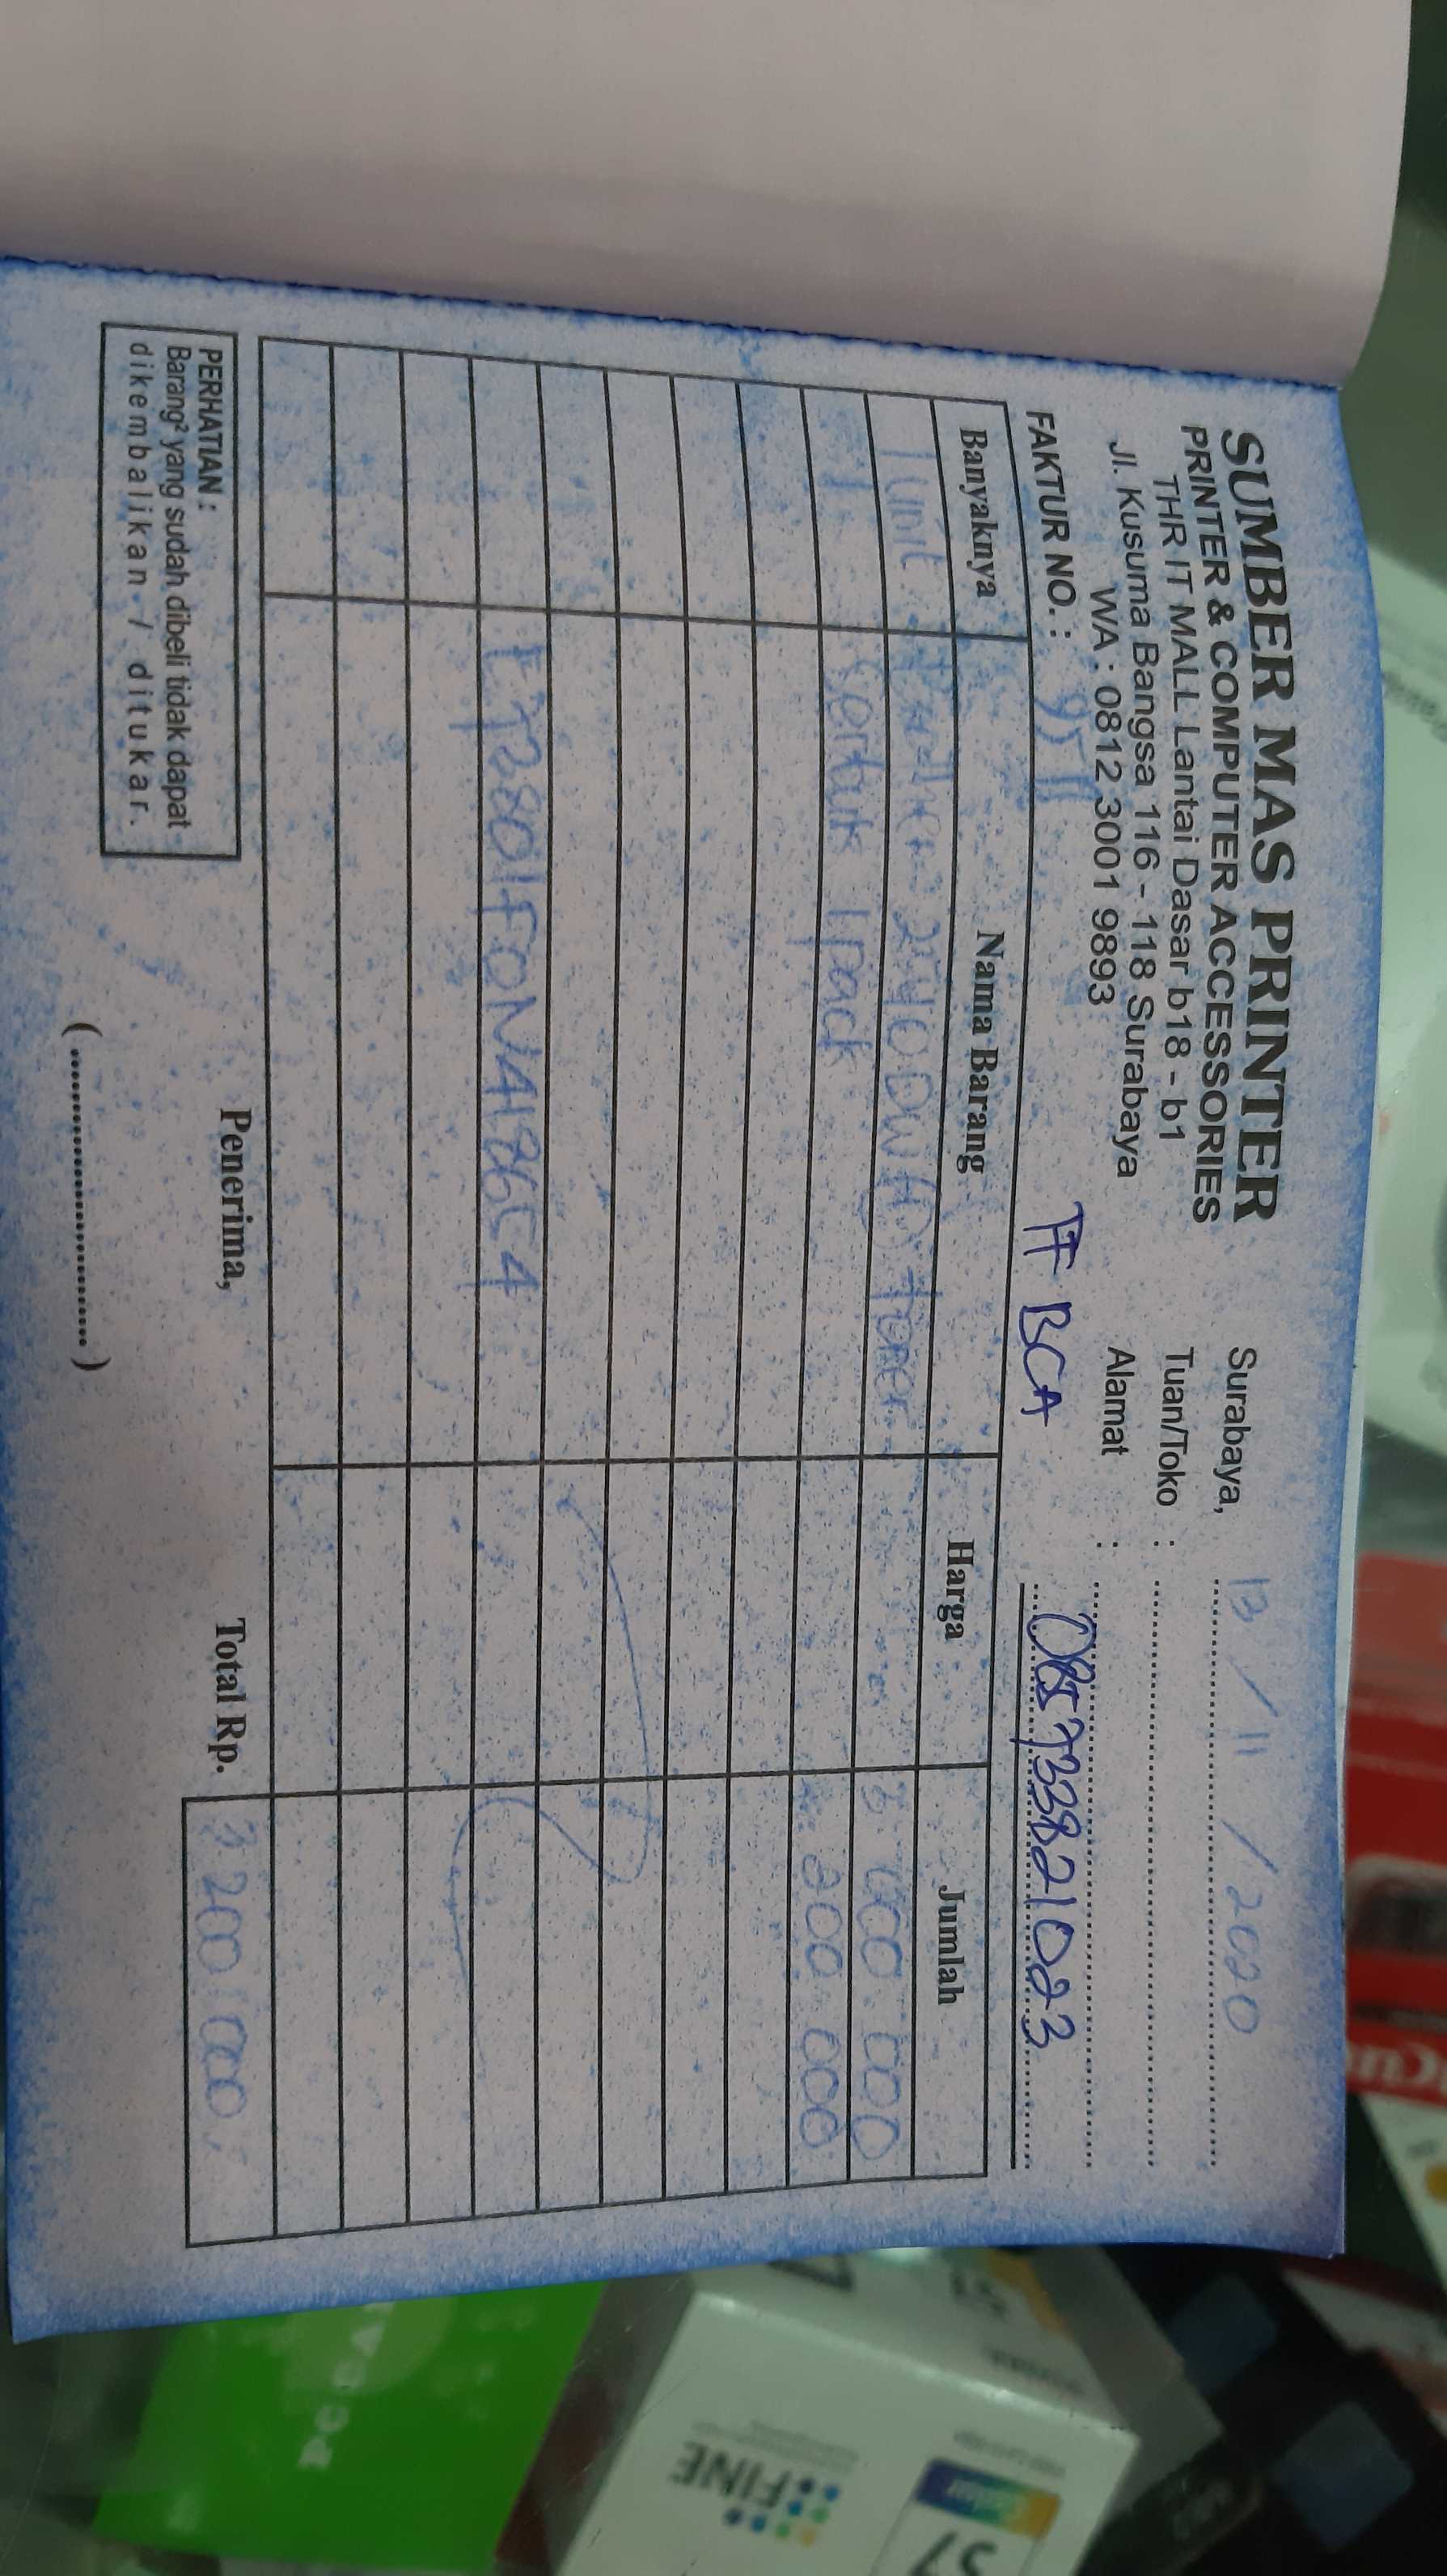 SUMBER MAS PRINTER
PRINTER & COMPUTER ACCESSORIES
THR IT MALL Lantai Dasar b18 - b1
Jl. Kusuma Bangsa 116 - 118 Surabaya
WA : 0812 3001 9893
Surabaya, 13 / 11 / 2020
Tuan/Toko :
Alamat :
085733821023
FAKTUR NO. :
TF BCA
Banyaknya Nama Barang Harga Jumlah
1 unit 2540DW 000.000
1 serbuk 1 pack 200.000
PERHATIAN :
Barang² yang sudah dibeli tidak dapat
dikembalikan / ditukar.
Penerima,
(....................)
Total Rp. 3.200.000
FINE
57